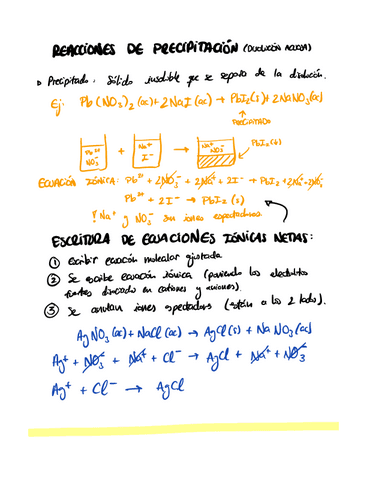 REACCIONES DE PRECIPITACIÓN (Disolución acuosa)
Precipitado: Sólido insoluble que se separa de la disolución.
Ej: Pb(NO₃)₂(ac) + 2NaI(ac) → PbI₂(s) + 2NaNO₃(ac)
PRECIPITADO
Pb²⁺ NO₃⁻ + Na⁺ I⁻ → Na⁺ NO₃⁻ PbI₂(s)
ECUACIÓN IÓNICA: Pb²⁺ + 2NO₃⁻ + 2Na⁺ + 2I⁻ → PbI₂ + 2Na⁺ + 2NO₃⁻
Pb²⁺ + 2I⁻ → PbI₂(s)
! Na⁺ y NO₃⁻ son iones espectadores.
ESCRITURA DE ECUACIONES IÓNICAS NETAS:
① Escribir ecuación molecular ajustada
② Se escribe ecuación iónica (poniendo los electrolitos
fuertes disociado en cationes y aniones).
③ Se anulan iones espectadores (están a los 2 lados).
AgNO₃(ac) + NaCl(ac) → AgCl(s) + NaNO₃(ac)
Ag⁺ + NO₃⁻ + Na⁺ + Cl⁻ → AgCl + Na⁺ + NO₃⁻
Ag⁺ + Cl⁻ → AgCl